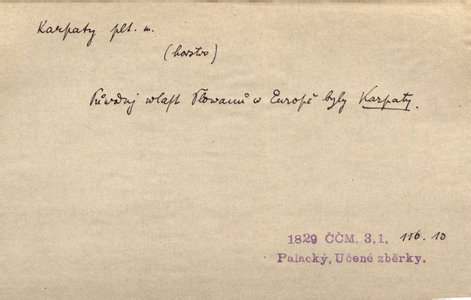 Karpaty plt. m.
(horstvo)
Půwodnj wlast Slowanů w Europě byly Karpaty.
1829 ČČM. 3,1. 116.10
Palacký, Učené zběrky.